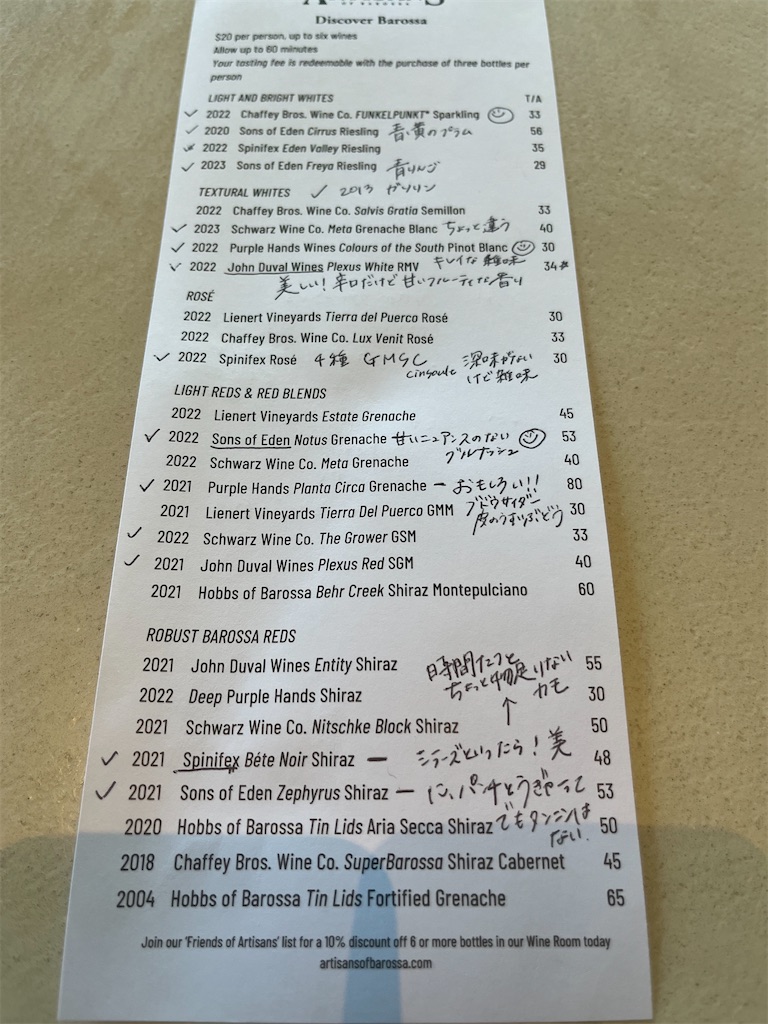 OF BAROSSA
Discover Barossa
$20 per person, up to six wines
Allow up to 60 minutes
Your tasting fee is redeemable with the purchase of three bottles per
person
LIGHT AND BRIGHT WHITES T/A
2022 Chaffey Bros. Wine Co. FUNKELPUNKT* Sparkling 33
2020 Sons of Eden Cirrus Riesling 青い黄のプラム 56
2022 Spinifex Eden Valley Riesling 35
2023 Sons of Eden Freya Riesling 青りんご 29
TEXTURAL WHITES ✓ 2013 ガソリン
2022 Chaffey Bros. Wine Co. Salvis Gratia Semillon 33
2023 Schwarz Wine Co. Meta Grenache Blanc ちょっと違う 40
2022 Purple Hands Wines Colours of the South Pinot Blanc 30
キレイな雑味
2022 John Duval Wines Plexus White RMV 34
美しい!辛口だけど甘いフルーティな香り
ROSÉ
2022 Lienert Vineyards Tierra del Puerco Rosé 30
2022 Chaffey Bros. Wine Co. Lux Venit Rosé 33
2022 Spinifex Rosé 4種 GMSC 深味がない 30
cinsault けど雑味
LIGHT REDS & RED BLENDS
2022 Lienert Vineyards Estate Grenache 45
2022 Sons of Eden Notus Grenache 甘いニュアンスのない 53
グルナッシュ
2022 Schwarz Wine Co. Meta Grenache 40
2021 Purple Hands Planta Circa Grenache – おもしろい!! 80
ブドウサイダー
2021 Lienert Vineyards Tierra Del Puerco GMM 30
皮のうすいぶどう
2022 Schwarz Wine Co. The Grower GSM 33
2021 John Duval Wines Plexus Red SGM 40
2021 Hobbs of Barossa Behr Creek Shiraz Montepulciano 60
ROBUST BAROSSA REDS
2021 John Duval Wines Entity Shiraz 時間たつと 55
ちょっと物足りない
2022 Deep Purple Hands Shiraz カモ 30
2021 Schwarz Wine Co. Nitschke Block Shiraz ↑ 50
2021 Spinifex Béte Noir Shiraz – シラーズといったら!美 48
2021 Sons of Eden Zephyrus Shiraz – パンチ 53
2020 Hobbs of Barossa Tin Lids Aria Secca Shiraz でもタンニンは 50
ない.
2018 Chaffey Bros. Wine Co. SuperBarossa Shiraz Cabernet 45
2004 Hobbs of Barossa Tin Lids Fortified Grenache 65
Join our 'Friends of Artisans' list for a 10% discount off 6 or more bottles in our Wine Room today
artisansofbarossa.com